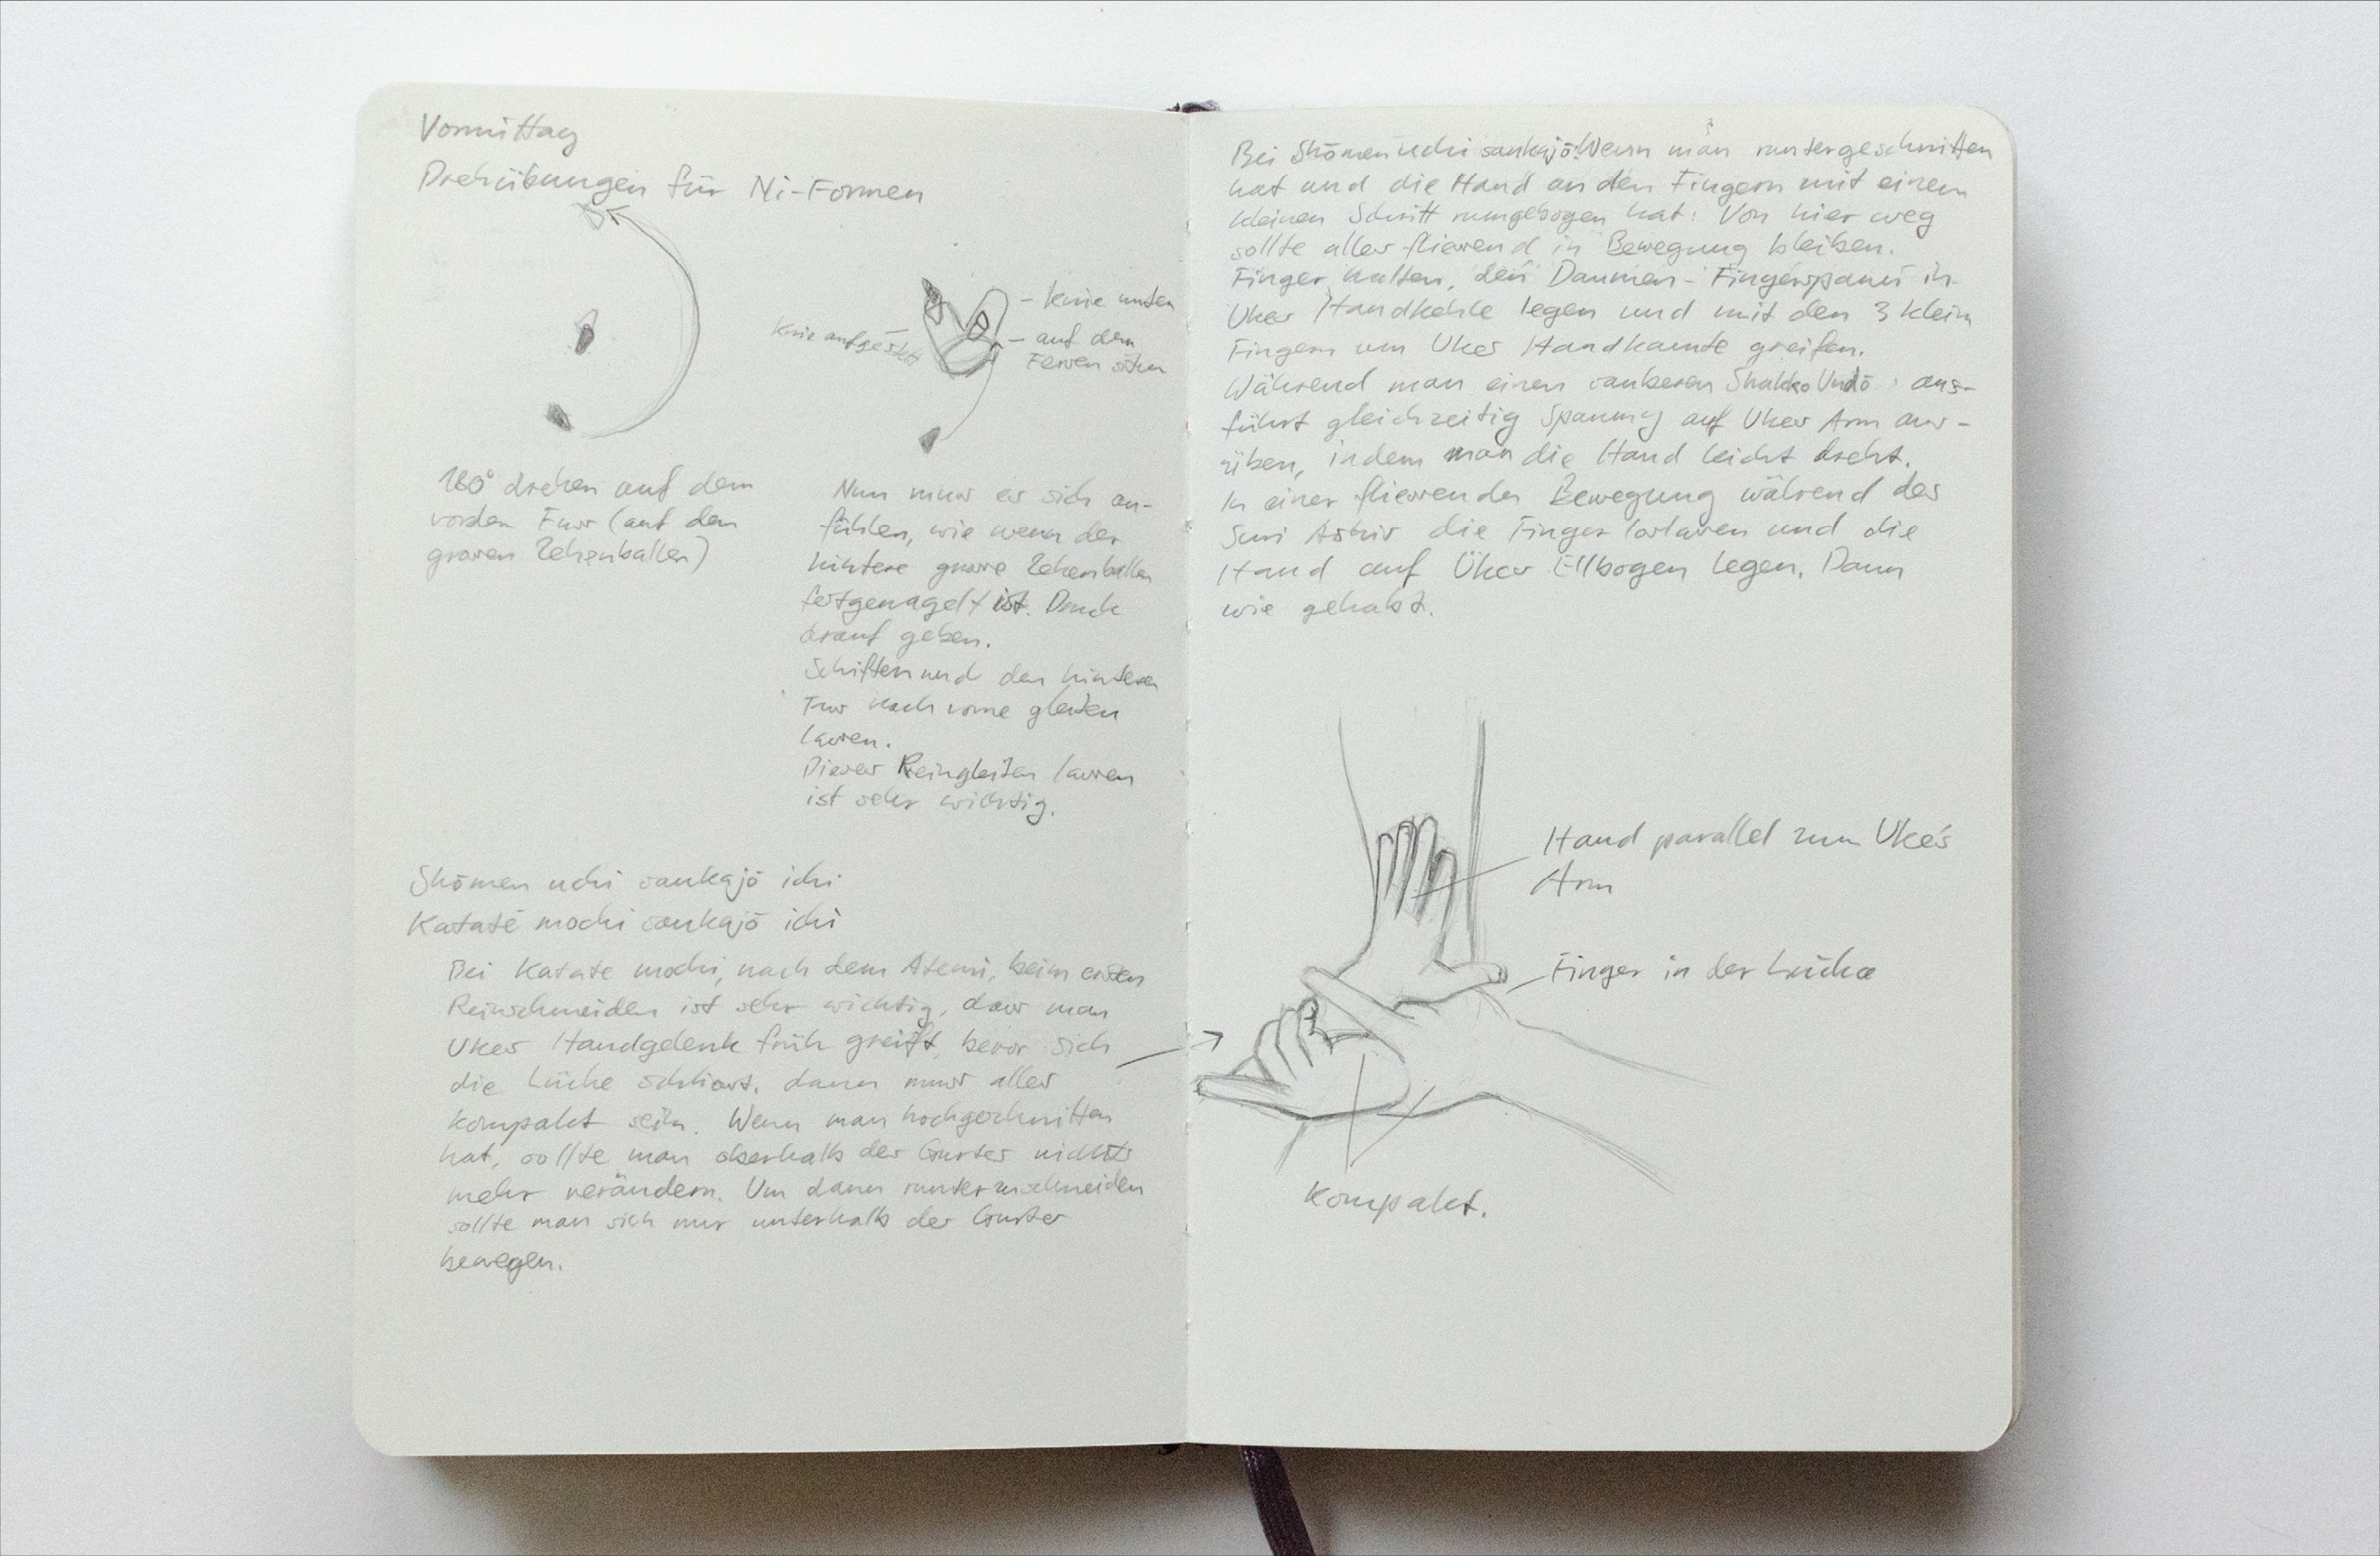 Vormittag
Drehübungen für Ni-Formen
Knie aufgestellt
- Knie unten
- auf den
Fersen sitzen
180° drehen auf dem
vorden Fuss (auf dem
grossen Zehenballen)
Nun muss es sich an-
fühlen, wie wenn der
hintere grosse Zehenballen
festgenagelt ist. Druck
drauf geben.
Schiften und den hinteren
Fuss nach vorne gleiten
lassen.
Dieses Reingleiten lassen
ist sehr wichtig.
Shōmen uchi sankajō ichi
Katate mochi sankajō ichi
Bei Katate mochi, nach dem Atemi, beim ersten
Reinschneiden ist sehr wichtig, dass man
Ukes Handgelenk früh greift, bevor sich
die Lücke schliesst. dann muss alles
kompakt sein. Wenn man hochgeschnitten
hat, sollte man oberhalb des Gurtes nichts
mehr verändern. Um dann runterzuschneiden
sollte man sich nur unterhalb der Gurtes
bewegen.
Bei Shōmen uchi sankajō: Wenn man runtergeschnitten
hat und die Hand an den Fingern mit einem
kleinen Schritt rumgebogen hat: Von hier weg
sollte alles fliessend in Bewegung bleiben.
Finger halten, den Daumen-Fingerspann in
Ukes Handkehle legen und mit den 3 klein
Fingern um Ukes Handkante greifen.
Während man einen sauberen Shakko Undō aus-
führt gleichzeitig Spannung auf Ukes Arm aus-
üben, indem man die Hand leicht dreht.
In einer fliessenden Bewegung während des
Suri Ashis die Finger loslassen und die
Hand auf Ükes Ellbogen legen. Dann
wie gehabt.
Hand parallel zum Uke's
Arm
Finger in der Lücke
Kompakt.